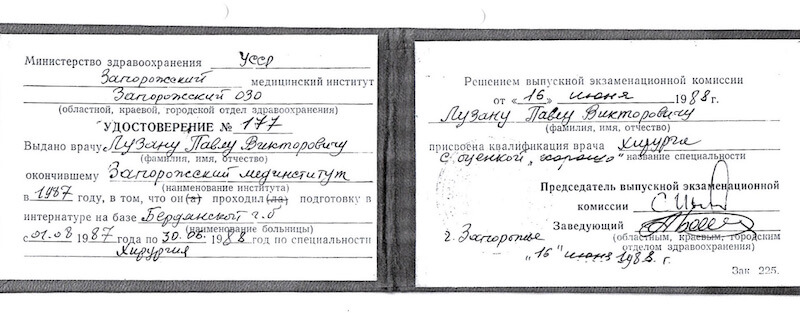 Министерство здравоохранения УССР
Запорожский медицинский институт
Запорожский ОЗО
(областной, краевой, городской отдел здравоохранения)
УДОСТОВЕРЕНИЕ № 177
Выдано врачу Лузану Павлу Викторовичу
(фамилия, имя, отчество)
окончившему Запорожский мединститут
(наименование института)
в 1987 году, в том, что он (а) проходил (ла) подготовку в
интернатуре на базе Бердянской г.б
(наименование больницы)
с 01.08 1987 года по 30.06. 1988 год по специальности
Хирургия
Решением выпускной экзаменационной комиссии
от «16» июня 1988 г.
Лузану Павлу Викторовичу
(фамилия, имя, отчество)
присвоена квалификация врача хирурга
с оценкой „хорошо" название специальности
Председатель выпускной экзаменационной
комиссии
Заведующий
г. Запорожье (областным, краевым, городским
отделом здравоохранения)
„16" июня 1988. г.
Зак 225.